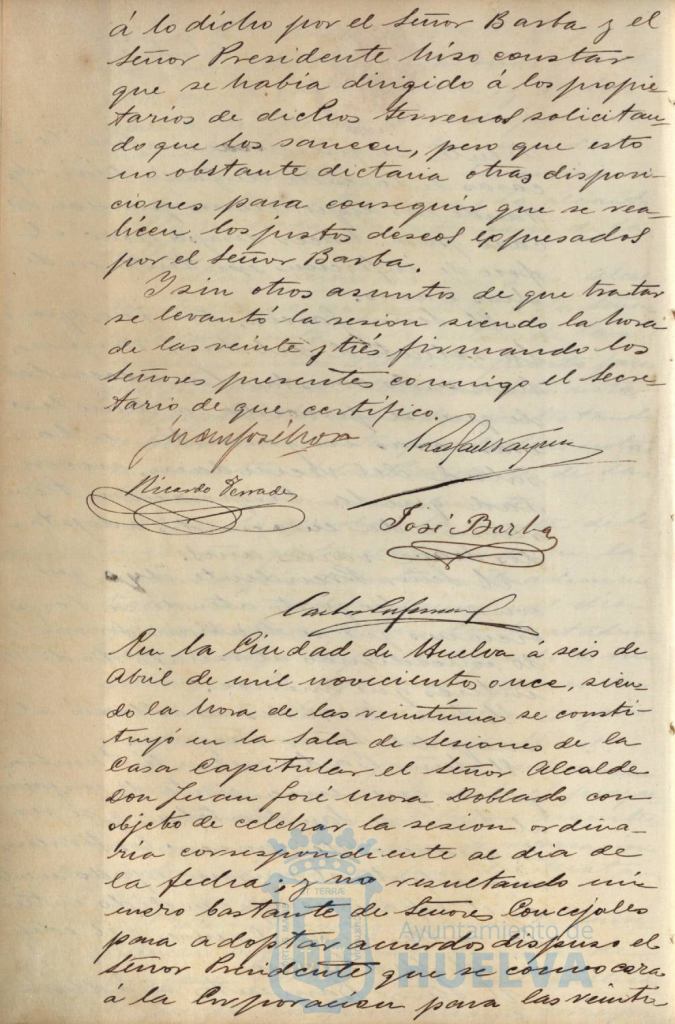 á lo dicho por el Señor Barba y el
Señor Presidente hiso constar
que se había dirigido á los propie-
tarios de dichos terrenos solicitan-
do que los saneen, pero que esto
no obstante dictaria otras disposi-
ciones para conseguir que se rea-
licen los justos deseos expresados
por el Señor Barba.
Y sin otros asuntos de que tratar
se levantó la sesion siendo la hora
de las veinte y trés firmando los
Señores presentes conmigo el Secre-
tario de que certifico.
Juan José Mora
Rafael Vazquez
Ricardo Terrades
José Barba
En la Ciudad de Huelva á seis de
Abril de mil novecientos once, sien-
do la hora de las veintiuna se consti-
tuyó en la Sala de Sesiones de la
Casa Capitular el Señor Alcalde
Don Juan José Mora Doblado con
objeto de celebrar la sesion ordina-
ria correspondiente al dia de
la fecha; y no resultando nú-
mero bastante de Señores Concejales
para adoptar acuerdos dispuso el
Señor Presidente que se convocara
á la Corporacion para las veinti-
Ayuntamiento de
HUELVA